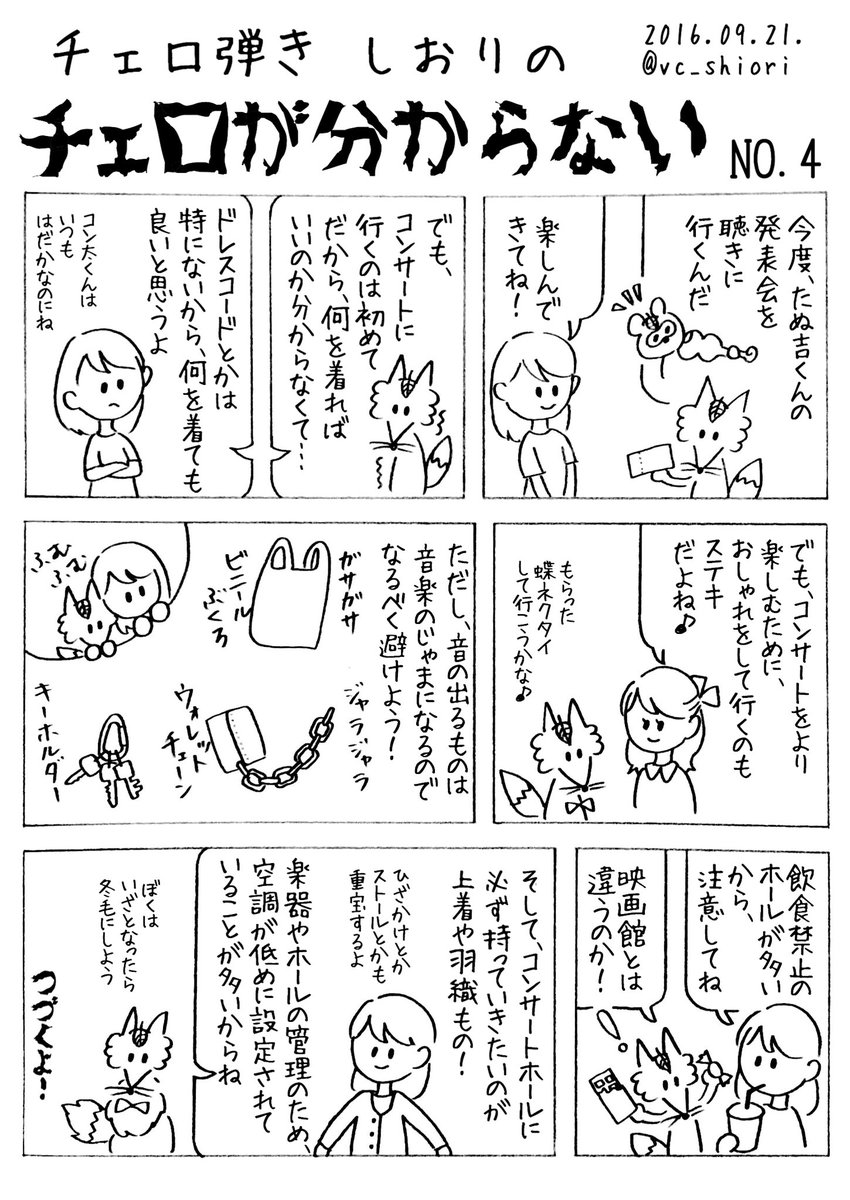 チェロ弾き しおりの
2016.09.21.
@vc_shiori
チェロが分からない
NO.4
今度、たぬ吉くんの
発表会を
聴きに
行くんだ
楽しんで
きてね！
でも、
コンサートに
行くのは初めて
だから、何を着れば
いいのか分からなくて…
ドレスコードとかは
特にないから、何を着ても
良いと思うよ
コン太くんは
いつも
はだかなのにね
でも、コンサートをより
楽しむために、
おしゃれをして行くのも
ステキ
だよね♪
もらった
蝶ネクタイ
して行こうかな♪
ただし、音の出るものは
音楽のじゃまになるので
なるべく避けよう！
ガサガサ
ビニール
ぶくろ
ジャラジャラ
ウォレット
チェーン
キーホルダー
ふむ
ふむ
飲食禁止の
ホールが多い
から、
注意してね
映画館とは
違うのか！
そして、コンサートホールに
必ず持っていきたいのが
上着や羽織もの！
ひざかけとか
ストールとかも
重宝するよ
楽器やホールの管理のため、
空調が低めに設定されて
いることが多いからね
ぼくは
いざとなったら
冬毛にしよう
つづくよー